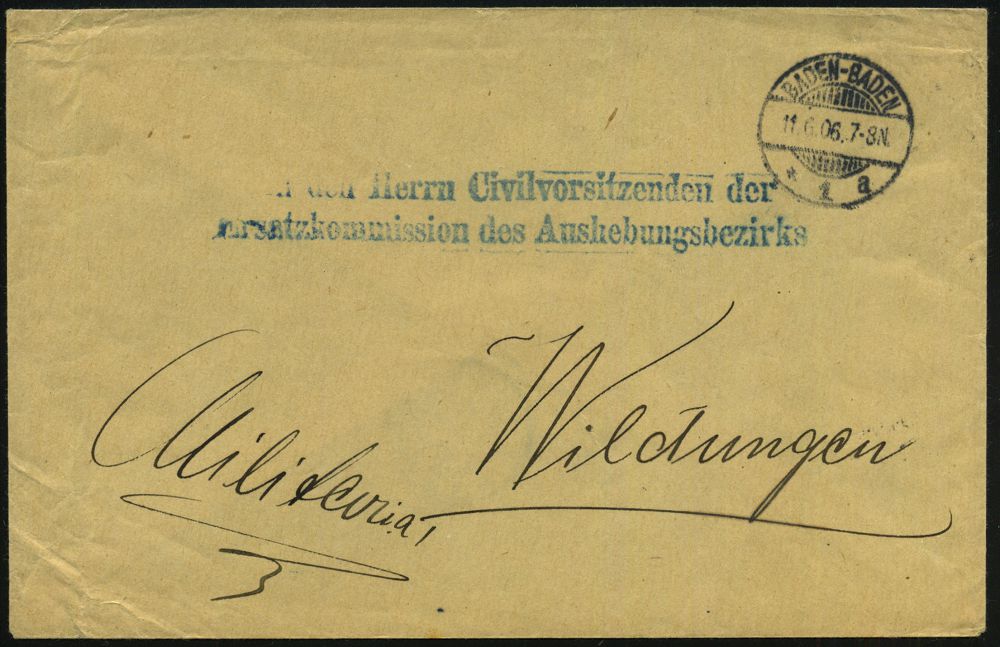 BADEN-BADEN
11.6.06.7-8N.
* 1 a
den Herrn Civilvorsitzenden der
Ersatzkommission des Aushebungsbezirks
Wildungen
Militaria,